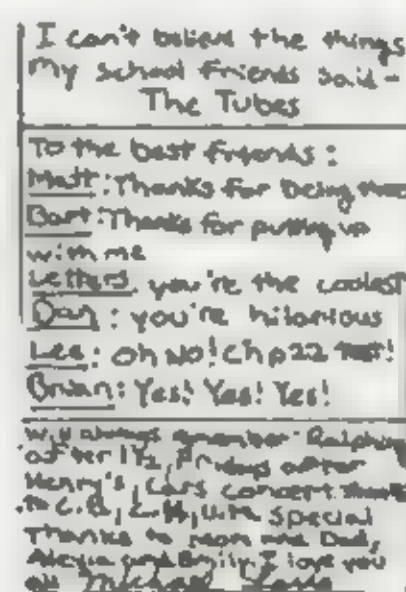 I can't believe the things
my school friends said -
The Tubes
To the best friends :
Matt: Thanks for being there
Bart: Thanks for putting up
with me
Letters you're the coolest
Dan: you're hilarious
Lee: oh No! Chp 22 test!
Brian: Yes! Yes! Yes!
always remember
after 1/2, Fridays after
Henry's, Cars concert
to C.B., with special
Thanks to mom and Dad,
and Emily I love you
all Michael